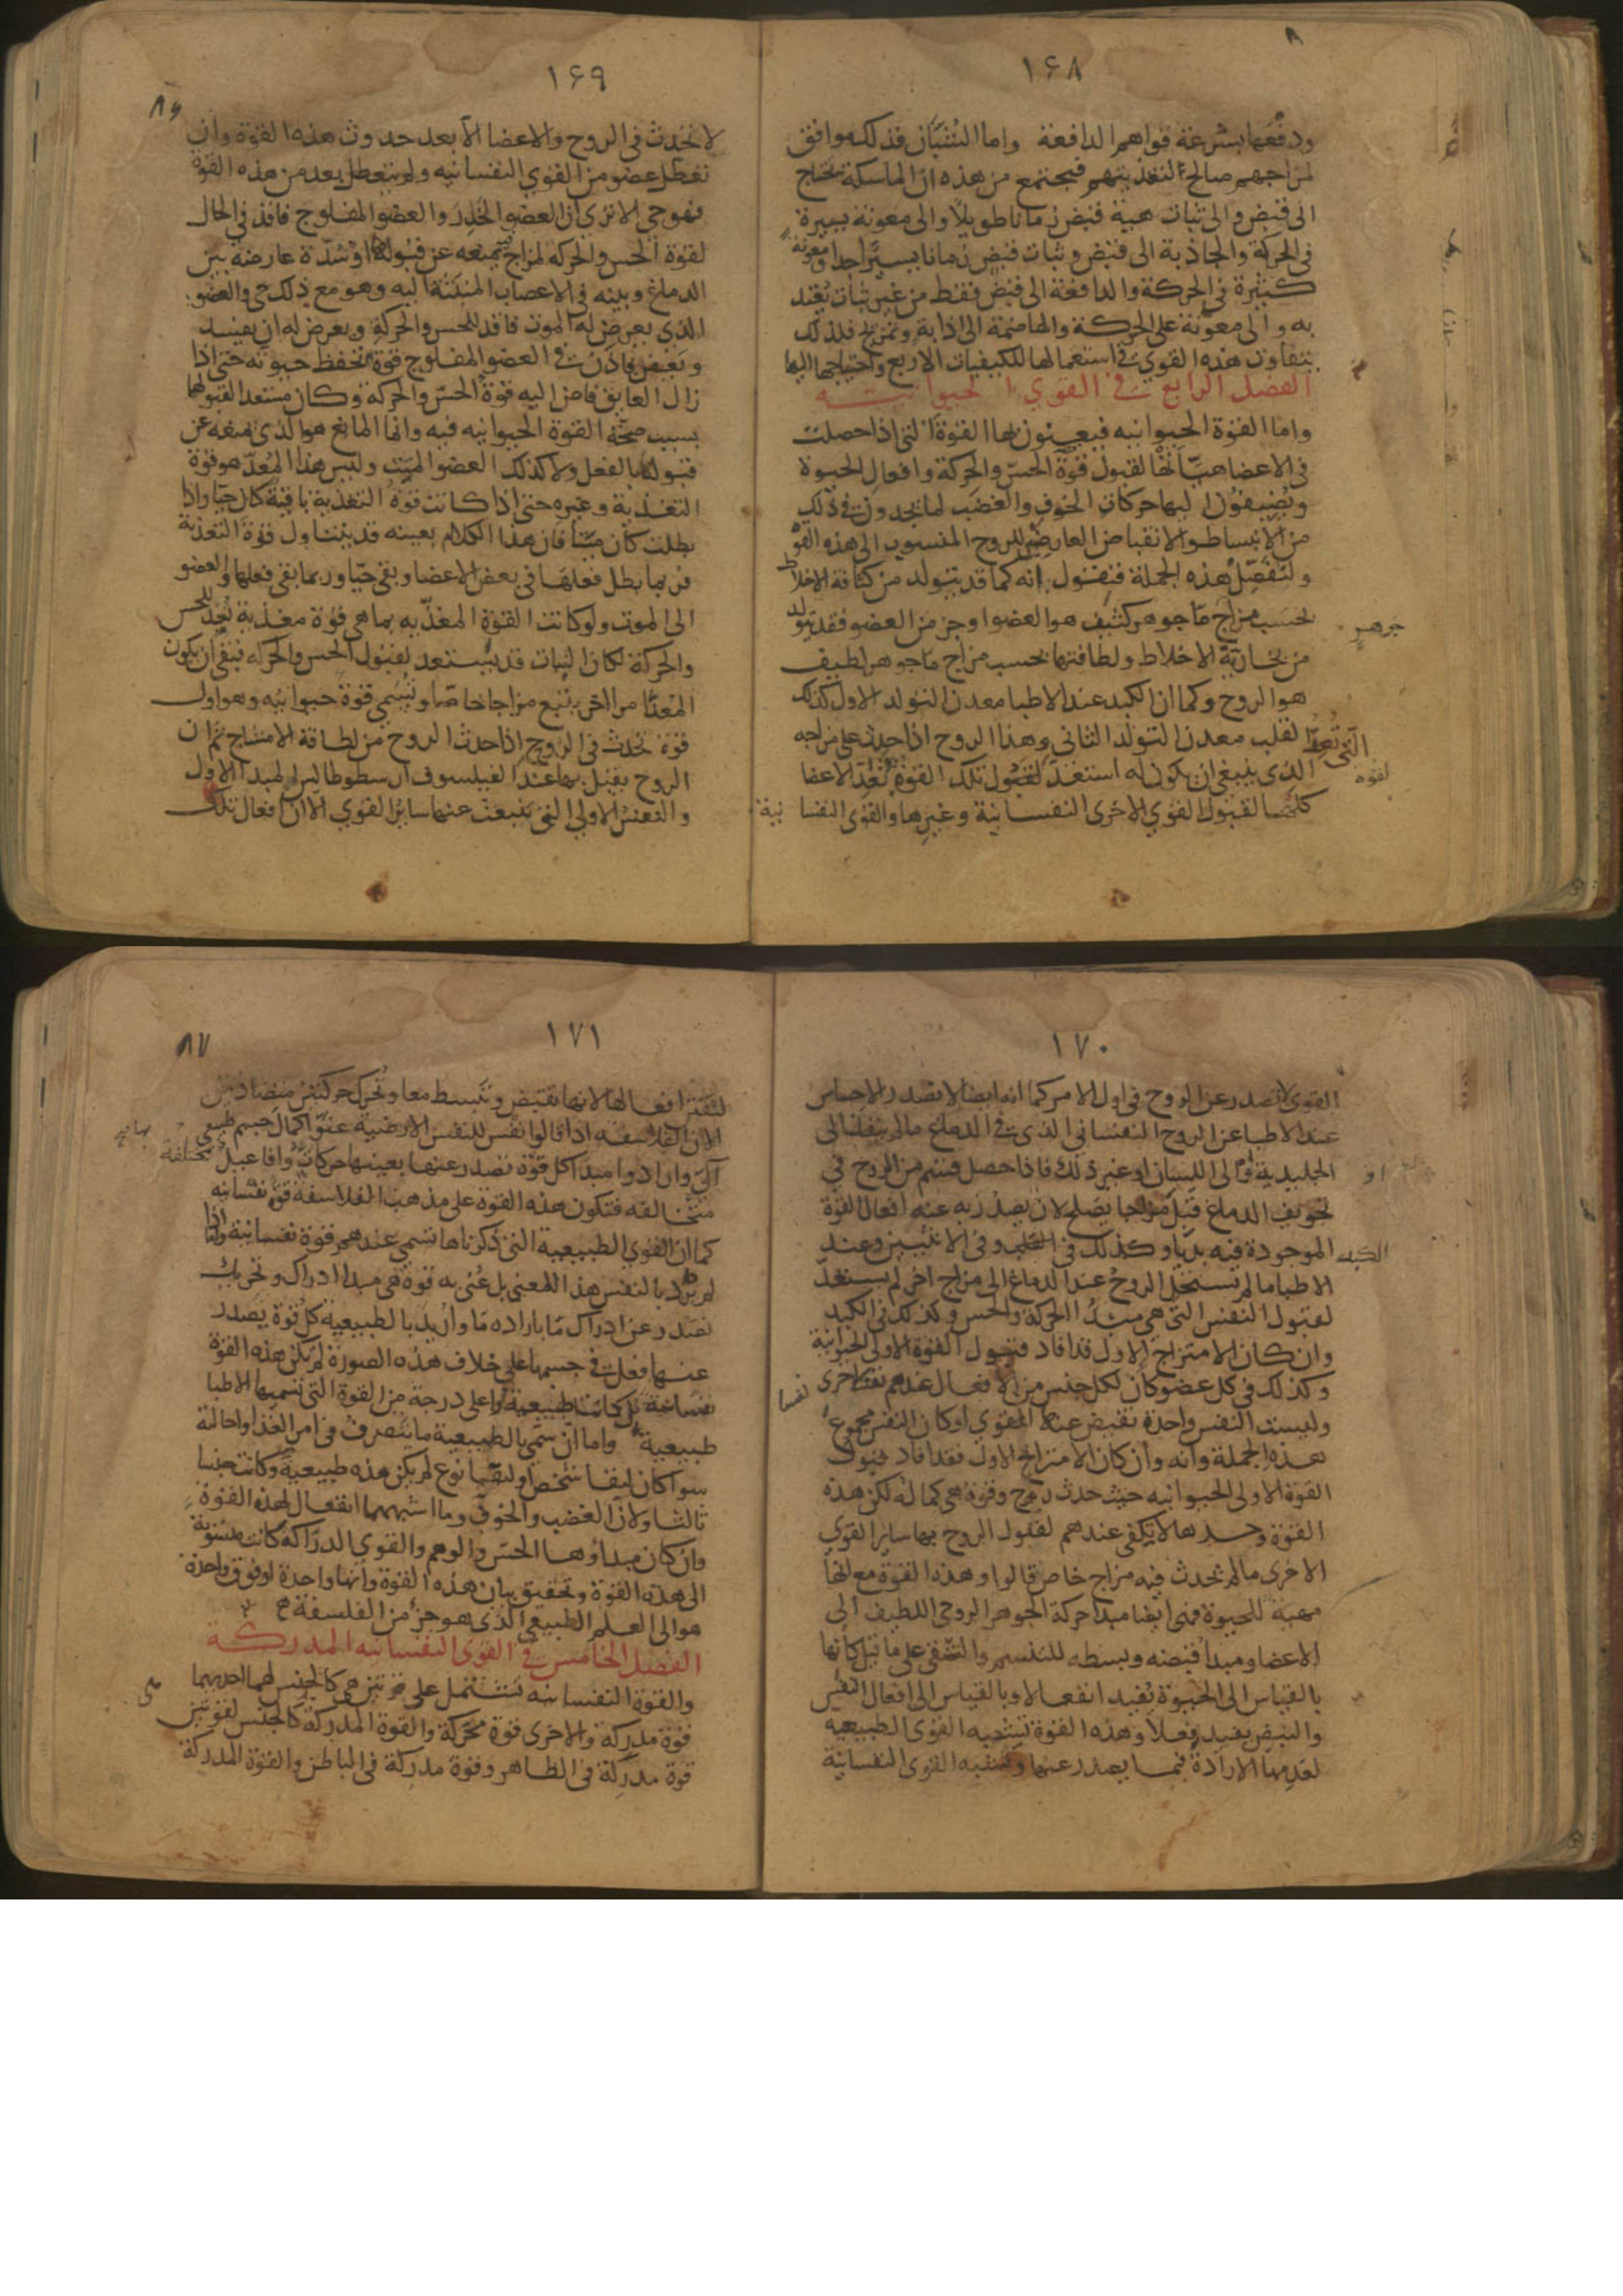 ١۶٨
ودفعها بسرعة قواهم الدافعة واما الثنيان فذلك موافق
لمزاجهم صالح لتغذيتهم فيجتمع من هذه ان الماسكة تحتاج
الى قبض والى ثبات هيئة قبض زمانا طويلا والى معونة يسيرة
في الحركة والجاذبة الى قبض وثبات قبض زمانا يسيرا جدا ومعونة
كثيرة في الحركة والدافعة الى قبض فقط من غير ثبات يعتد
به والى معونة على الحركة والهاضمة الى اذابة وتمزيج فلذلك
يتفاوت هذه القوي في استعمالها للكيفيات الاربع واحتياجها اليها
الفصل الرابع في القوي الحيوانية
واما القوة الحيوانيه فيعنون بها القوة التي اذا حصلت
في الاعضا هيأتها لقبول قوة الحس والحركة وافعال الحيوة
ويضيفون اليها حركات الخوف والغضب لما يجدون في ذلك
من الانبساط والانقباض العارض للروح المنسوب الى هذه القوة
ولنفصل هذه الجملة فنقول انه كما قد يتولد من كثافة الاخلاط
بحسب مزاج ما جوهر كثيف هو العضو او جز من العضو فقد يتولد
جوهر
من بخارية الاخلاط ولطافتها بحسب مزاج ما جوهر لطيف
هو الروح وكما ان الكبد عند الاطبا معدن التولد الاول كذلك
القلب معدن التولد الثاني وهذا الروح اذا حدث على مزاجه
الذي ينبغي ان يكون له استعد لقبول تلك القوة تعد الاعضا
لقوه
كلها لقبول القوي الاخرى النفسانية وغيرها والقوى النفسانية
١۶٩
٨۶
لا تحدث في الروح والاعضا الا بعد حدوث هذه القوة وان
تعطل عضو من القوي النفسانيه ولم يتعطل بعد من هذه القوة
فهو حي الا تري ان العضو الخدر والعضو المفلوج فاقد في الحال
لقوة الحس والحركه لمزاج يمنعه عن قبوله او سدة عارضة بين
الدماغ وبينه في الاعصاب المنبثة اليه وهو مع ذلك حي والعضو
الذي يعرض له الموت فاقد للحس والحركة ويعرض له ان يعفن
ويفسد فاذن في العضو المفلوج قوة تحفظ حيوته حتى اذا
زال العايق فاض اليه قوة الحس والحركة وكان مستعدا لقبولها
بسبب صحة القوة الحيوانيه فيه وانما المانع هو الذي يمنعه عن
قبولها بالفعل ولا كذلك العضو الميت وليس هذا المعد هو قوة
التغذية وغيره حتى اذا كانت قوة التغذية باقية كان حيا واذا
بطلت كان ميتا فان هذا الكلام بعينه قد يتناول قوة التغذية
فربما بطل فعلها في بعض الاعضا وبقي حيا وربما بقي فعلها والعضو
الى الموت ولو كانت القوة المغذيه بما هي قوة مغذية تعد للحس
والحركة لكان النبات قد يستعد لقبول الحس والحركه فبقي ان يكون
المعد امرا اخر يتبع مزاجا خاصا ويسمى قوة حيوانيه وهو اول
قوة تحدث في الروح اذا حدث الروح من لطافة الامشاج ثم ان
الروح يقبل بها عند الفيلسوف ارسطوطاليس المبدا الاول
والنفس الاولي التي ينبعث عنها سائر القوي الا ان افعال تلك
١٧٠
القوي لا تصدر عن الروح في اول الامر كما انه ايضا لا يصدر الاحساس
عند الاطبا عن الروح النفساني الذي في الدماغ مالم ينفذ الى
الجليدية او الى اللسان او غير ذلك فاذا حصل قسم من الروح في
تجويف الدماغ قبل مزاجا يصلح لان يصدر به عنه افعال القوة
الموجودة فيه بديا وكذلك في الكبد وفي الانثيين وعند
الكبد
الاطبا ما لم يستحل الروح عند الدماغ الى مزاج اخر لم يستعد
لقبول النفس التي هي مبدا الحركة والحس وكذلك في الكبد
وان كان الامتزاج الاول قد افاد قبول القوة الاولي الحيوانية
وكذلك في كل عضو كان لكل جنس من الافعال عندهم نفس اخرى
نفسا
وليست النفس واحدة تفيض عنها القوي او كان النفس مجموع
هذه الجملة وانه وان كان الامتزاج الاول فقد افاد قبول
القوة الاولى الحيوانيه حيث حدث روح وقوة هي كما له لكن هذه
القوة وحدها لا يكفي عندهم لقبول الروح بها ساير القوي
الاخرى مالم يحدث فيه مزاج خاص قالوا وهذه القوة مع انها
مهيئة للحيوة فهي ايضا مبدا حركة الجوهر الروحي اللطيف الى
الاعضا ومبدا قبضه وبسطه للتنسم والتنقي على ما قيل كانها
بالقياس الى الحيوة يفيد انفعالا وبالقياس الى افعال النفس
والنبض يفيد فعلا وهذه القوة تشبه القوي الطبيعيه
لعدمها الارادة فيما يصدر عنها وتشبه القوي النفسانية
١٧١
٨٧
لتفنن افعالها لانها تقبض وتبسط معا وتحرك حركتين متضادتين
الا ان الفلاسفه اذا قالوا نفس للنفس الارضية عنوا كمال جسم طبيعي
آلي وان ارادوا مبدا كل قوة تصدر عنها بعينها حركات وافاعيل مختلفة
متخالفه فتكون هذه القوة على مذهب الفلاسفة قوة نفسانيه
كما ان القوي الطبيعية التي ذكرناها تسمي عندهم قوة نفسانية واما اذا
لم يرد بالنفس هذا المعني بل عني به قوة هي مبدا ادراك وتحريك
تصدر عن ادراك ما بارادة ما واريد بالطبيعية كل قوة يصدر
عنها فعل في جسمها على خلاف هذه الصورة لم يكن هذه القوة
نفسانية بل كانت طبيعية واعلى درجة من القوة التي يسميها الاطبا
طبيعية واما ان سمي بالطبيعية ما يتصرف في امر الغذا واحالته
سوا كان لبقا شخص او لبقا نوع لم يكن هذه طبيعية وكانت جنسا
ثالثا ولان الغضب والخوف وما اشبههما انفعال لهذه القوة
وان كان مبداؤها الحس والوهم والقوي الدراكة كانت منسوبة
الى هذه القوة وتحقيق بيان هذه القوة وانها واحدة او فوق واحدة
هو الى العلم الطبيعي الذي هو جز من الفلسفة
الفصل الخامس في القوى النفسانيه المدركة
والقوة النفسانيه تشتمل على قوتين هي كالجنس لهما احديهما
قوة مدركة والاخرى قوة محركة والقوة المدركة كالجنس لقوتين
قوة مدركة في الظاهر وقوة مدركة في الباطن والقوة المدركة